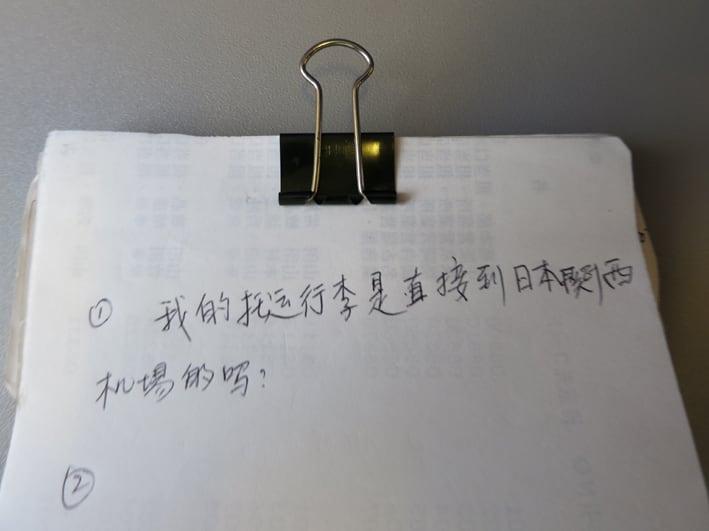 ① 我的托运行李是直接到日本関西
机場的吗?
②